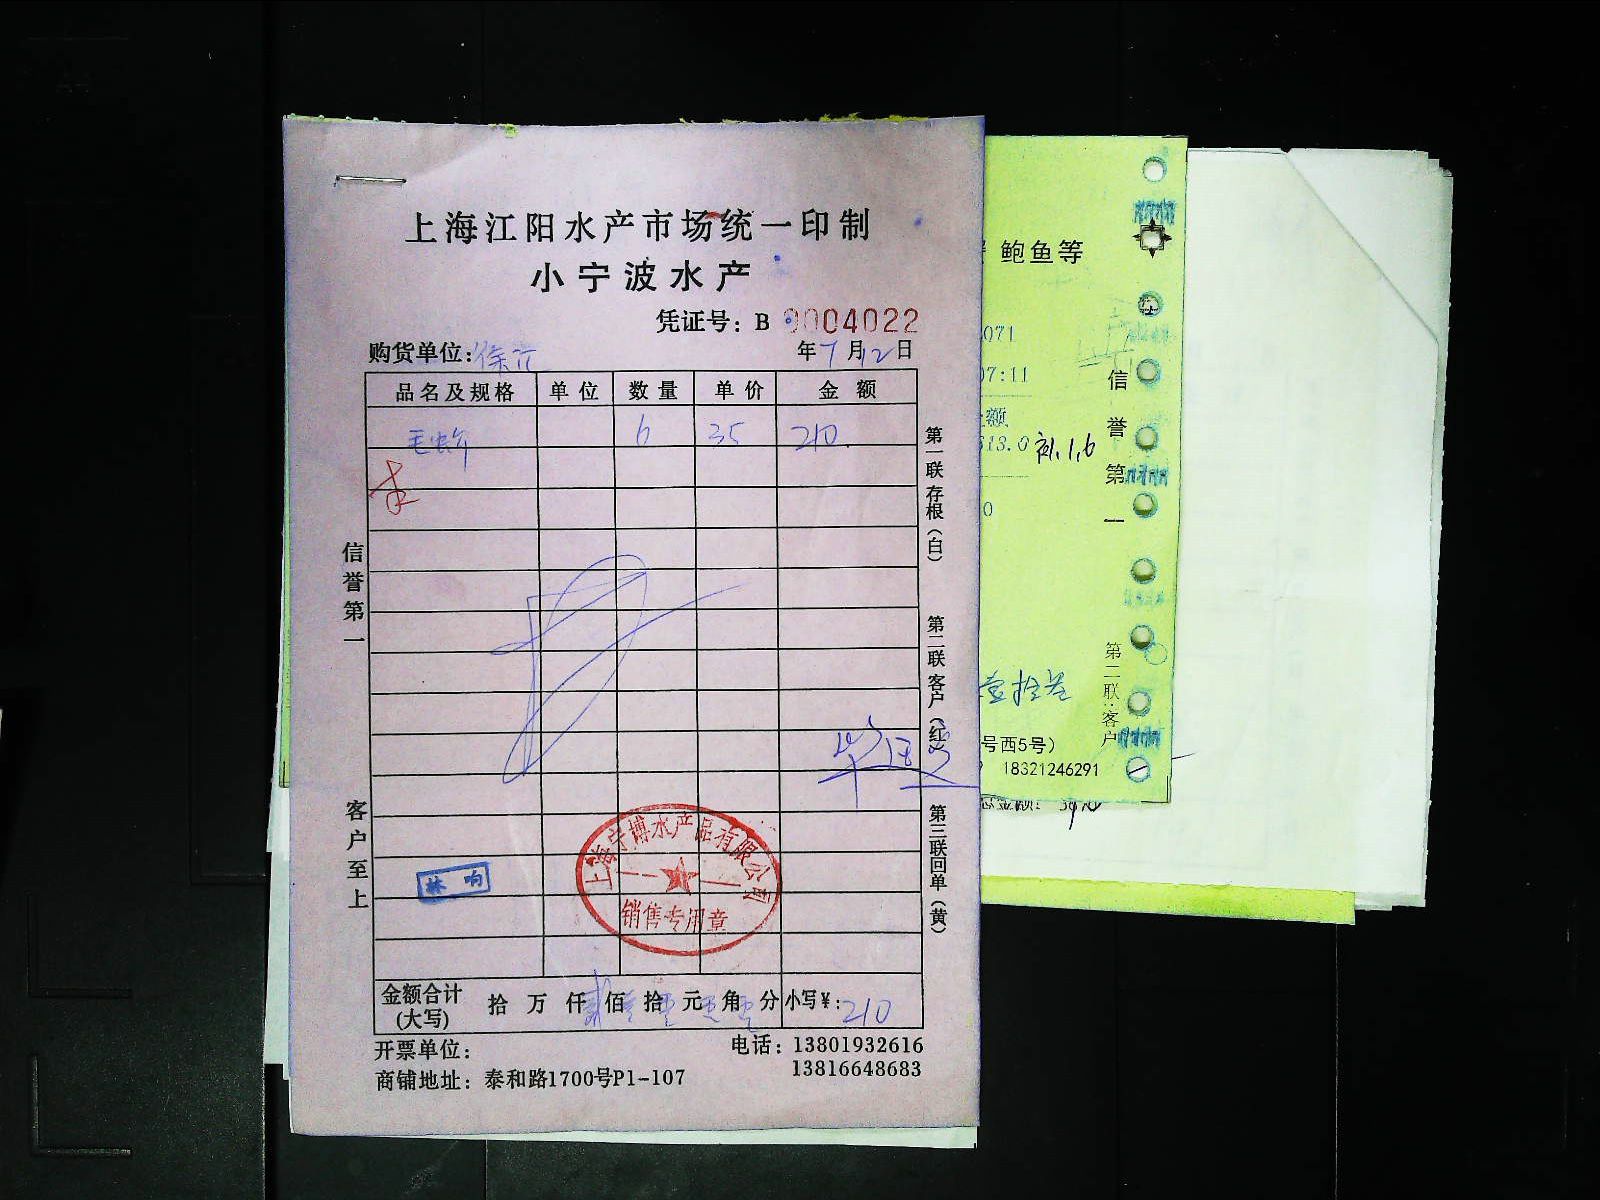 上海江阳水产市场统一印制
小宁波水产
凭证号：B 0004022
购货单位：徐 年7月12日
品名及规格 单位 数量 单价 金额
6 35 210.
信誉第一
客户至上
第一联存根（白）
第二联客户（红）
第三联回单（黄）
上海宁博水产品有限公司
销售专用章
林响
金额合计（大写） 拾万仟贰佰壹拾零元零角零分 小写￥：210
开票单位： 电话：13801932616
13816648683
商铺地址：泰和路1700号P1-107
鲍鱼等
071
07:11
额
613.0
0
信誉第一
第二联：客户
壹拾叁
号西5号）
18321246291